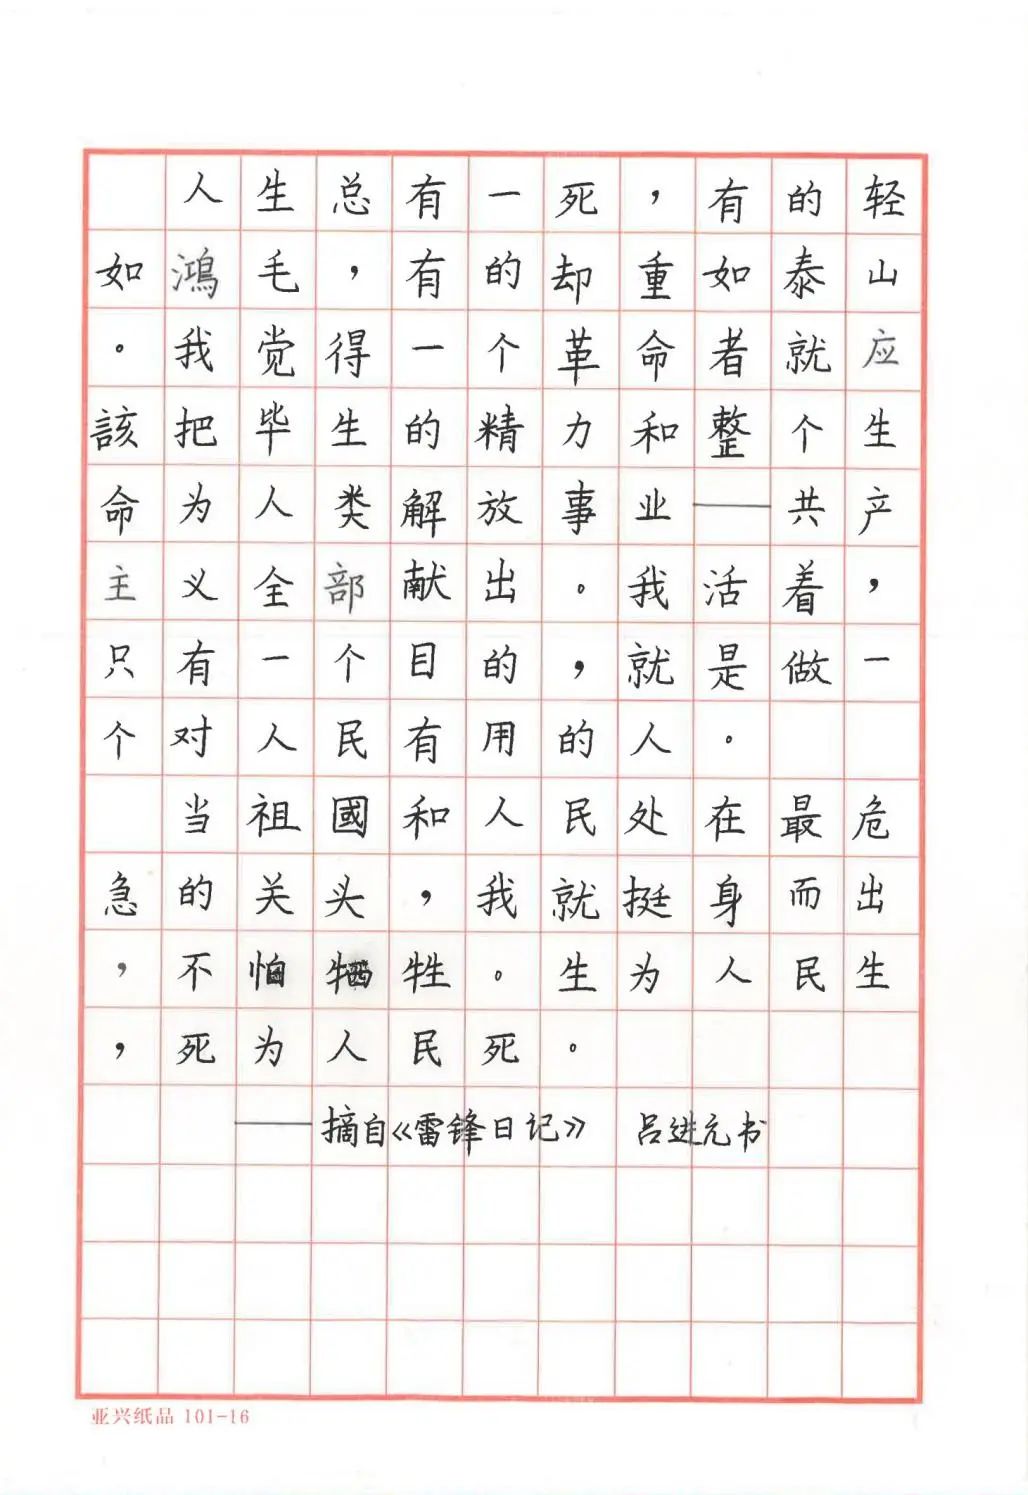 人生总有一死，有的轻
如鴻毛，有的却重如泰山
。我觉得一个革命者就应
該把毕生的精力和整个生
命为人类解放事业——共产
主义全部献出。我活着，
只有一个目的，就是做一
个对人民有用的人。
当祖國和人民处在最危
急的关头，我就挺身而出
，不怕牺牲。生为人民生
，死为人民死。
——摘自《雷锋日记》 吕进元书
亚兴纸品 101-16